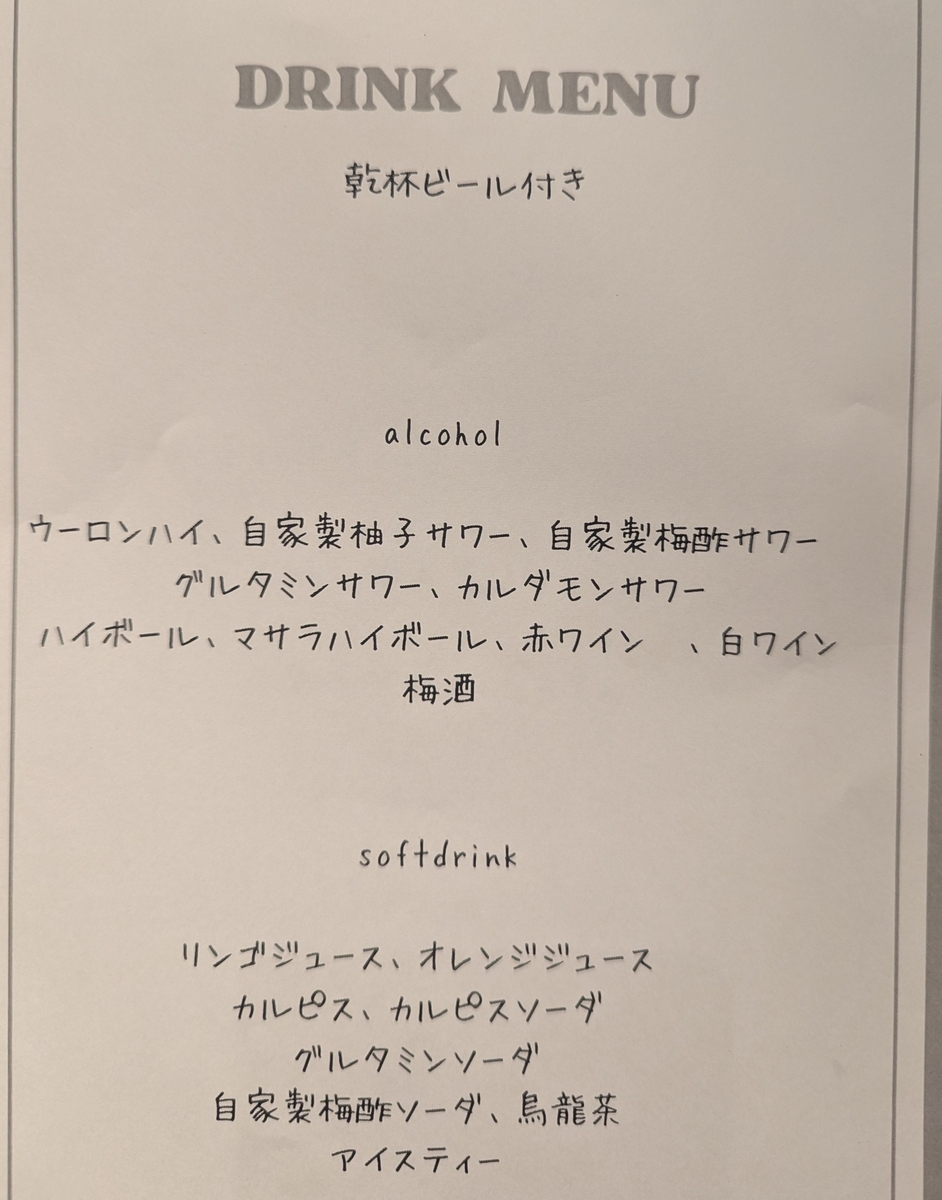 DRINK MENU
乾杯ビール付き
alcohol
ウーロンハイ、自家製柚子サワー、自家製梅酢サワー
グルタミンサワー、カルダモンサワー
ハイボール、マサラハイボール、赤ワイン　、白ワイン
梅酒
softdrink
リンゴジュース、オレンジジュース
カルピス、カルピスソーダ
グルタミンソーダ
自家製梅酢ソーダ、烏龍茶
アイスティー